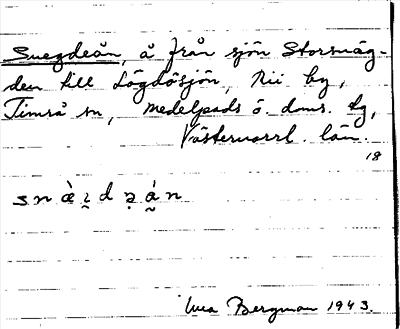 Snegdeån, å från sjön Storsnäg-
den till Lögdösjön, Nii by,
Timrå sn, Medelpads ö. doms. tg,
Västernorrl. län.
18
snὰi̯dəán
Bergman 1943.